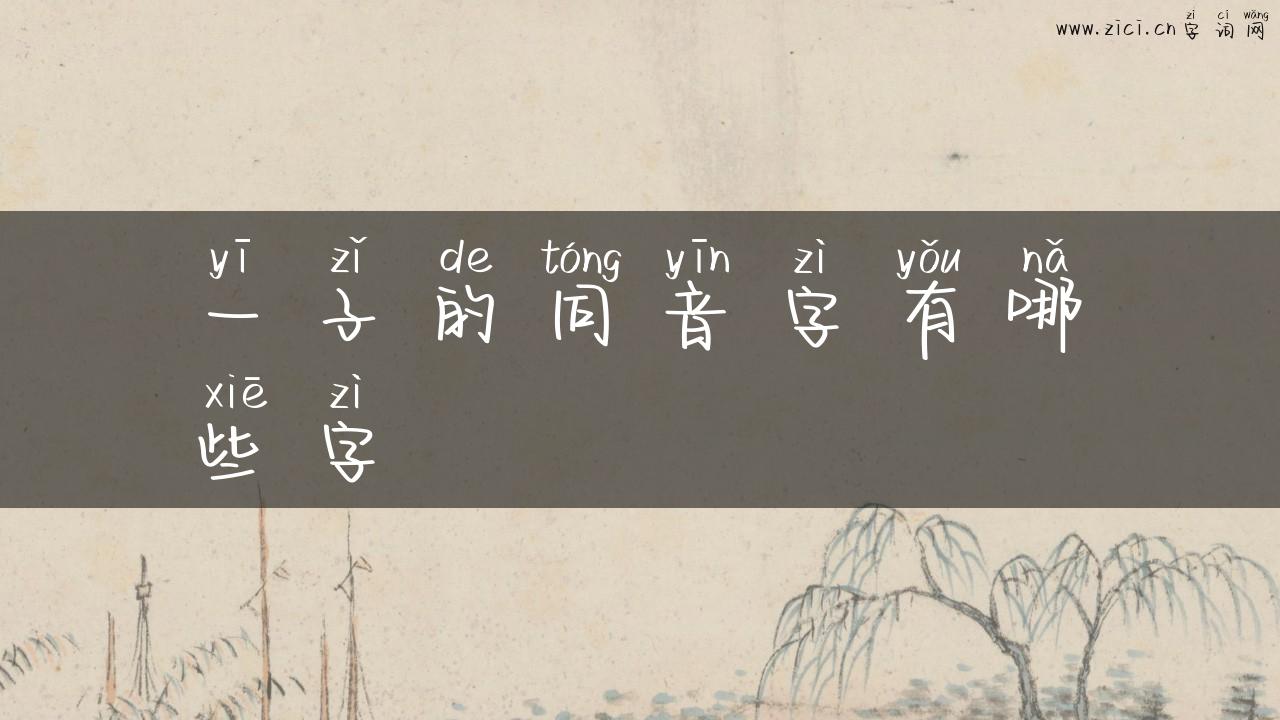 zì cí wǎng
www.zici.cn 字 词 网
yī zǐ de tóng yīn zì yǒu nǎ
一 子 的 同 音 字 有 哪
xiē zì
些 字